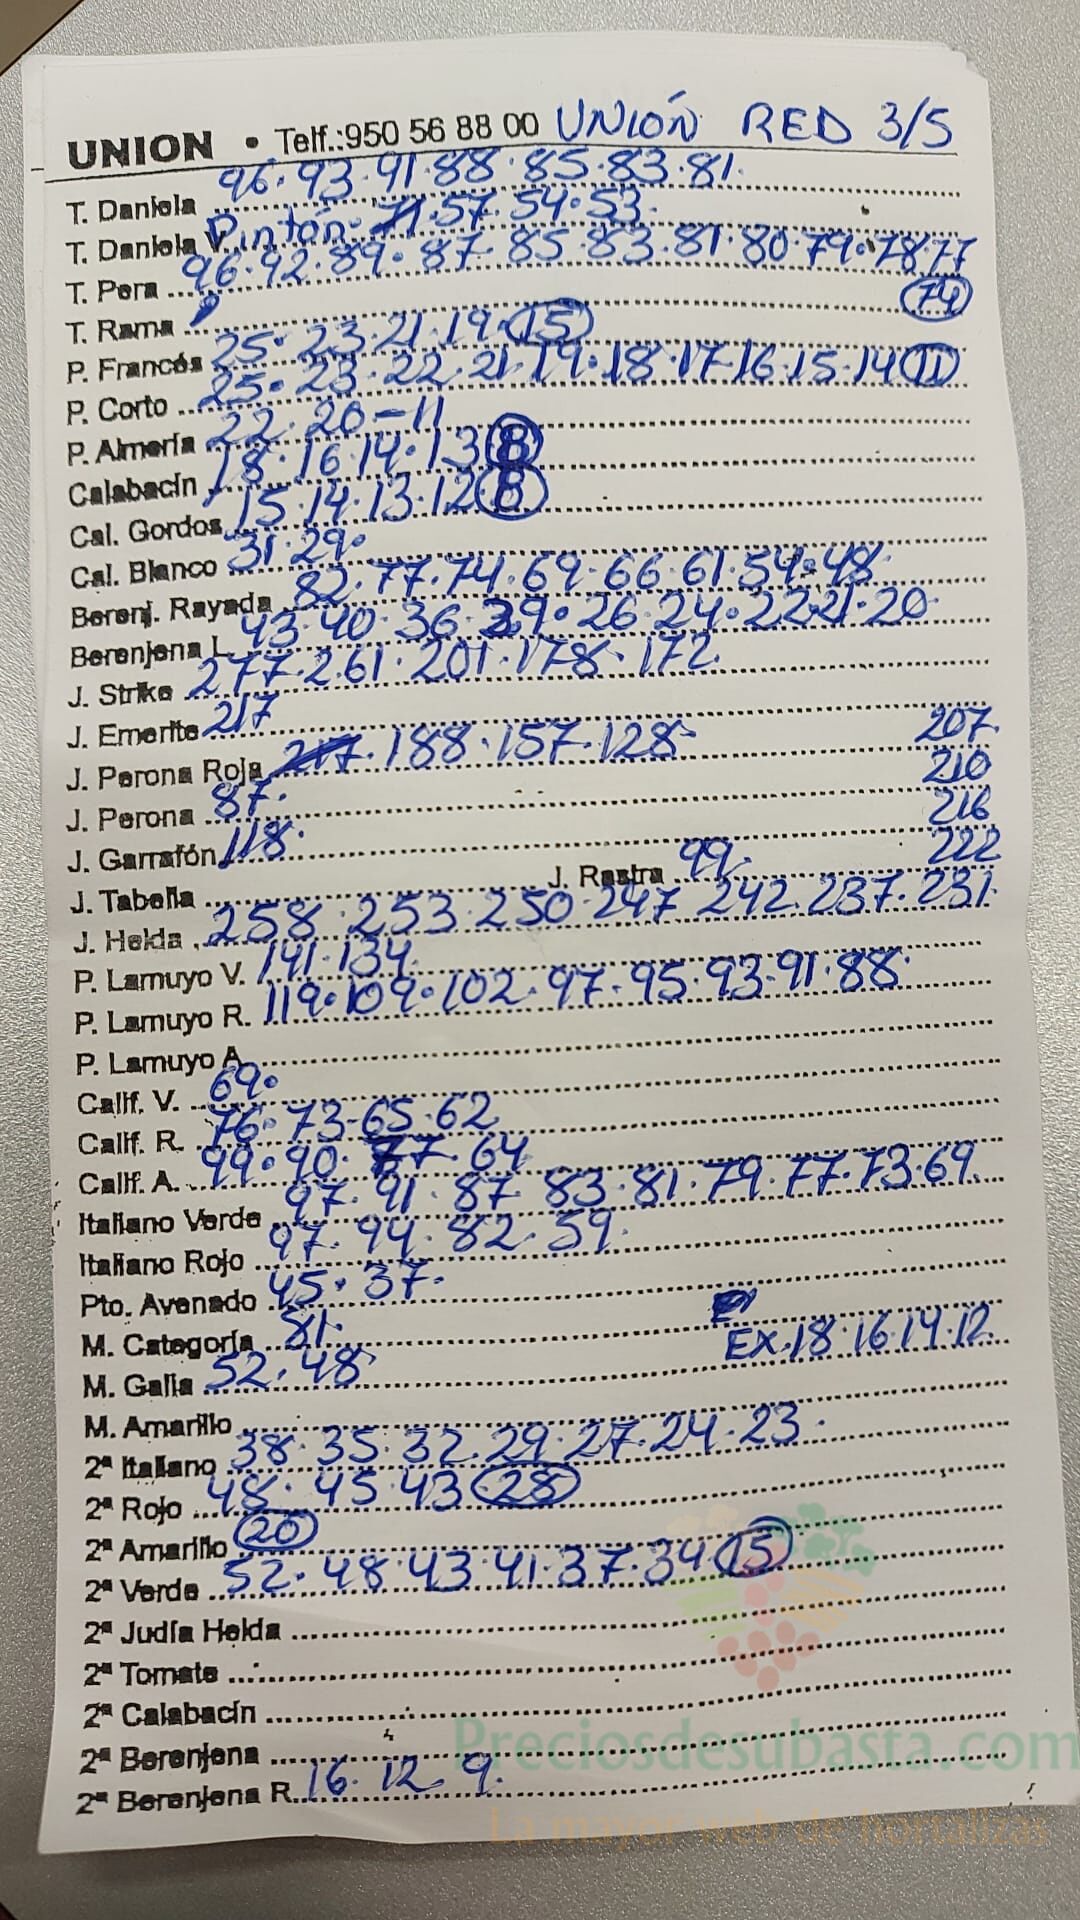 UNION • Telf.:950 56 88 00 UNIÓN RED 3/5
T. Daniela 96.93.91.88.85.83.81.
T. Daniela V. Pintón. 57.54.53.
T. Pera 96.92.89.87.85.83.81.80.79.78.77
T. Rama 74
P. Francés 25.23.21.19.15
P. Corto 25.23.22.21.19.18.17.16.15.14 11
P. Almería 22.20-11
Calabacín 18.16.14.13 8
Cal. Gordos 15.14.13.12 8
Cal. Blanco 31.29.
Berenj. Rayada 82.77.74.69.66.61.54.48.
Berenjena L. 43.40.36. 26.24.22.21.20.
J. Strike 277.261.201.178.172.
J. Emerite 217
J. Perona Roja 188.157.128. 207.
J. Perona 87. 210
J. Garrafón 118. 216
J. Tabella J. Rastra 99. 222
J. Helda 258.253.250.247 242.237.231.
P. Lamuyo V. 141.134.
P. Lamuyo R. 119.109.102.97.95.93.91.88.
P. Lamuyo A.
Calif. V. 69.
Calif. R. 76.73-65.62
Calif. A. 99.90.77.64
Italiano Verde 97.91.87 83.81.79.77.73.69.
Italiano Rojo 97.94.82.59.
Pto. Avenado 45.37.
M. Categoría 81.
M. Galia 52.48 EX.18.16.14.12.
M. Amarillo
2ª Italiano 38.35.32.29.27.24.23.
2ª Rojo 48.45.43 28
2ª Amarillo 20
2ª Verde 52.48.43.41.37.34 15
2ª Judía Helda
2ª Tomate
2ª Calabacín
2ª Berenjena
2ª Berenjena R. 16.12.9.
Preciosdesubasta.com
La mayor web de hortalizas